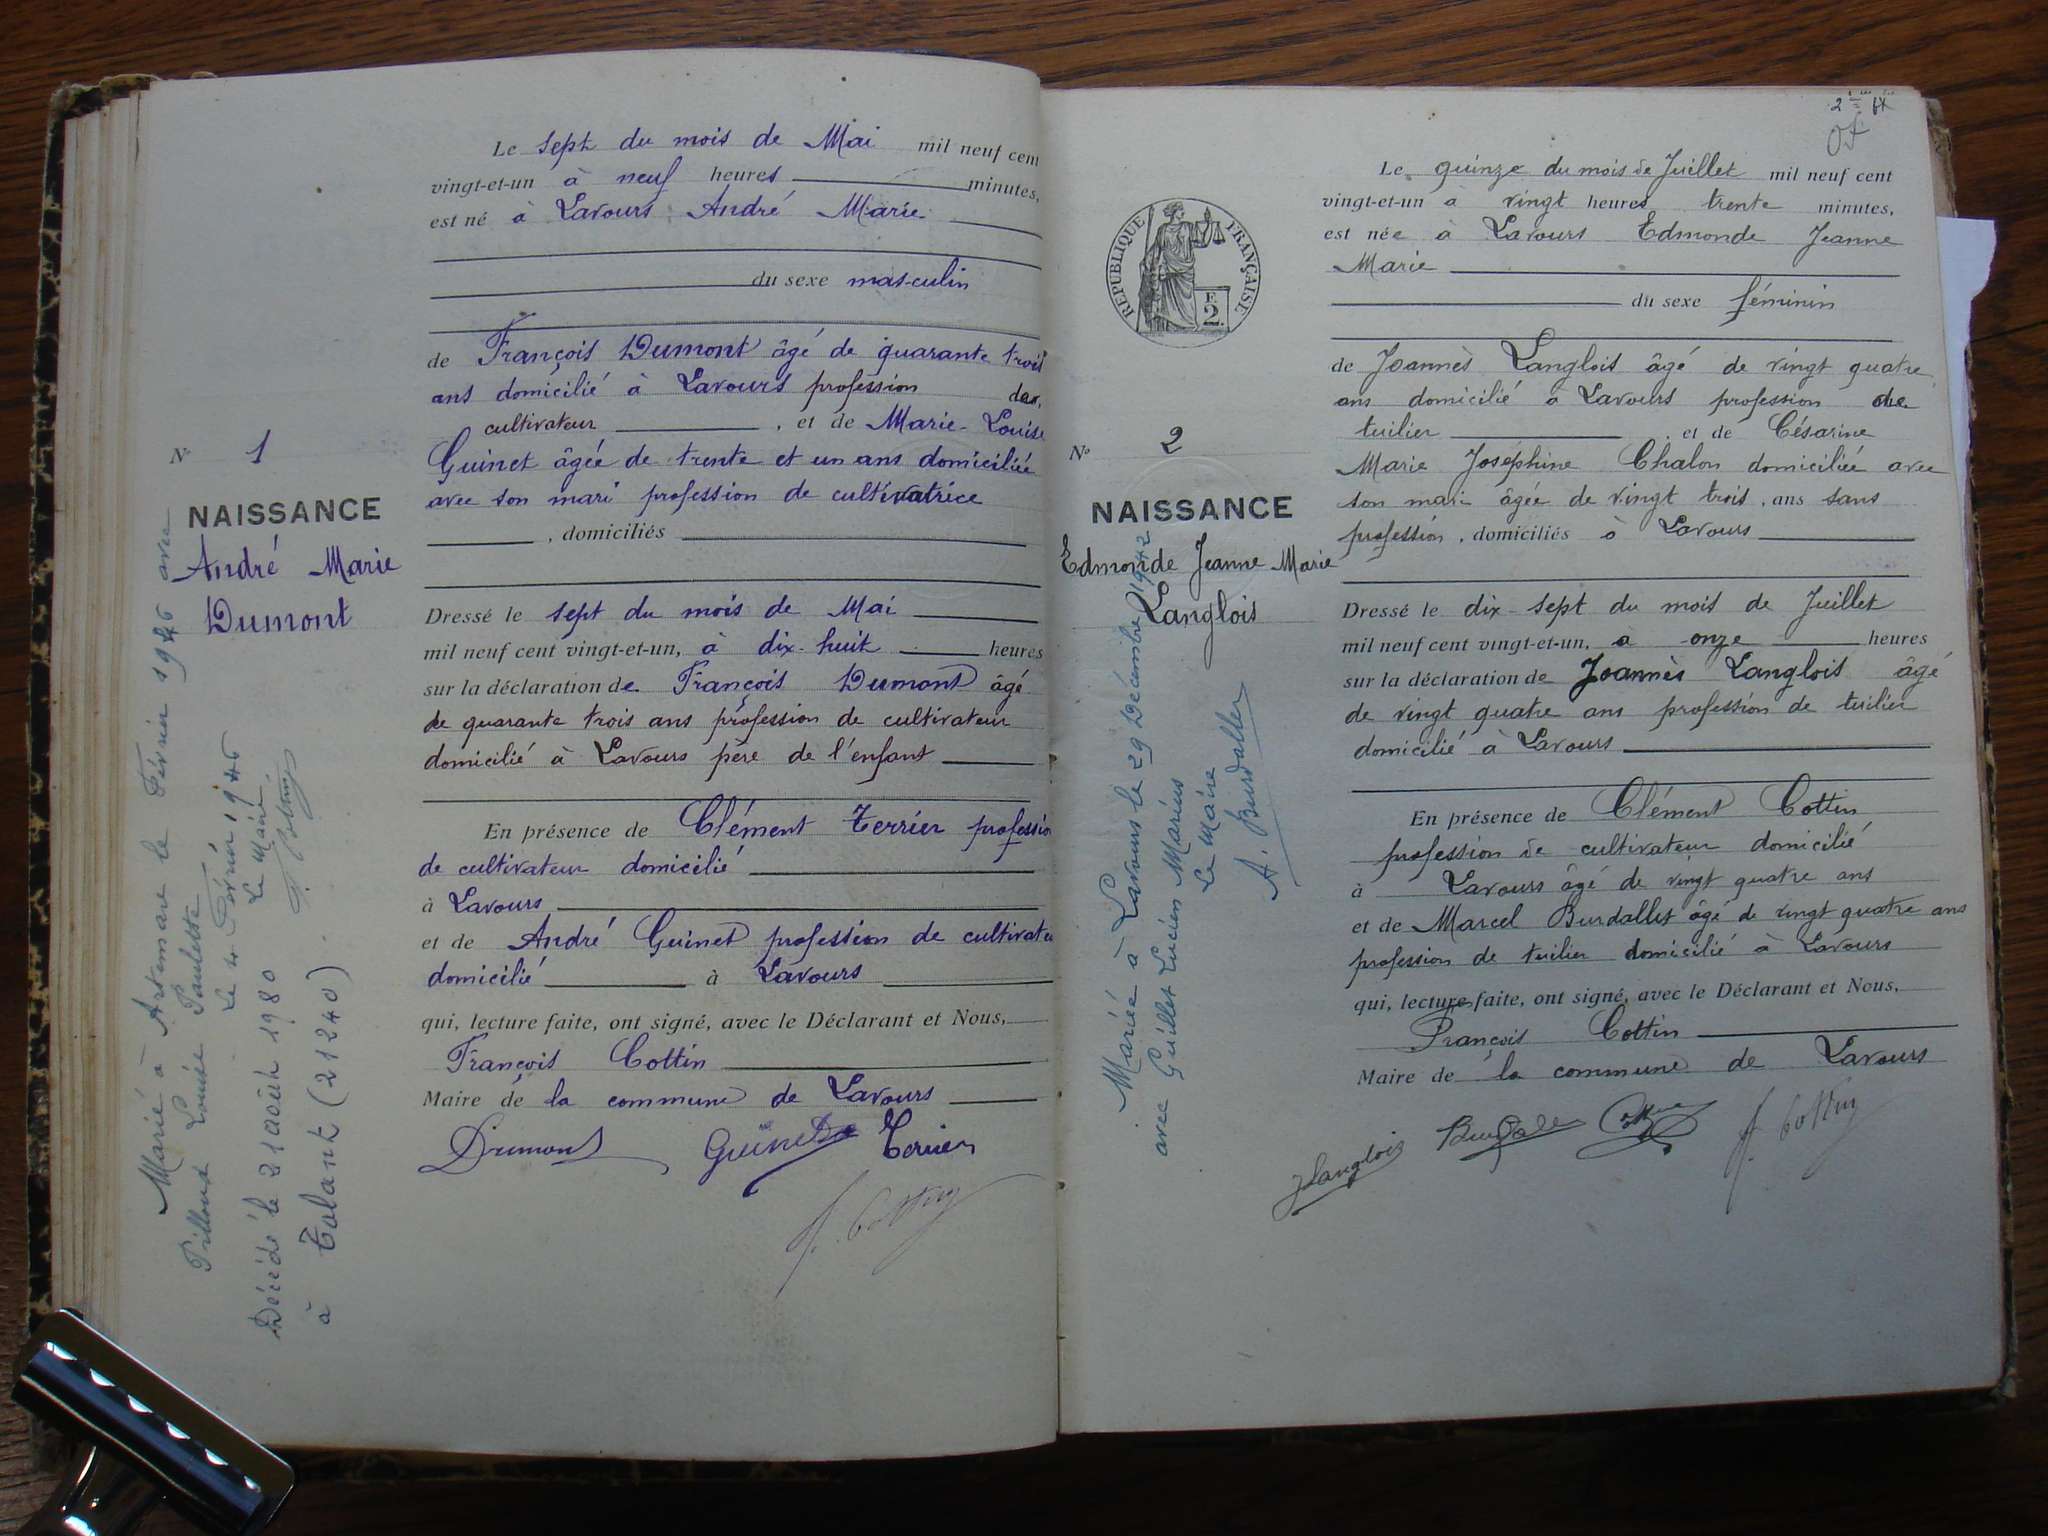 Le sept du mois de Mai mil neuf cent
vingt-et-un à neuf heures minutes,
est né à Lavours André Marie
du sexe masculin
de François Dumont âgé de quarante trois
ans domicilié à Lavours profession de
cultivateur , et de Marie-Louise
Guinet âgée de trente et un ans domiciliée
avec son mari profession de cultivatrice
, domiciliés
Dressé le sept du mois de Mai
mil neuf cent vingt-et-un, à dix-huit heures
sur la déclaration de François Dumont âgé
de quarante trois ans profession de cultivateur
domicilié à Lavours père de l'enfant
En présence de Clément Terrier profession
de cultivateur domicilié
à Lavours
et de André Guinet profession de cultivateu
domicilié à Lavours
qui, lecture faite, ont signé, avec le Déclarant et Nous,
François Cottin
Maire de la commune de Lavours
Dumont Guinet Terrier
f. Cottin
N° 1
NAISSANCE
André Marie
Dumont
Marié à Artemare le Février 1946 avec
Pilloux Louise Paulette
Le 4 Février 1946
Le Maire
F. Cottin
Décédé le 21 août 1980
à Talant (21240).
2
REPUBLIQUE FRANÇAISE
F.
2.
N° 2
NAISSANCE
Edmonde Jeanne Marie
Langlois
Mariée à Lavours le 29 Décembre 1942
avec Guillet Lucien Marius
Le Maire
A. Burdallet
Le quinze du mois de Juillet mil neuf cent
vingt-et-un à vingt heures trente minutes,
est née à Lavours Edmonde Jeanne
Marie
du sexe féminin
de Joannès Langlois âgé de vingt quatre
ans domicilié à Lavours profession de
tuilier et de Césarine
Marie Joséphine Chalon domiciliée avec
son mari âgée de vingt trois ans sans
profession, domiciliés à Lavours
Dressé le dix-sept du mois de Juillet
mil neuf cent vingt-et-un, à onze heures
sur la déclaration de Joannès Langlois âgé
de vingt quatre ans profession de tuilier
domicilié à Lavours
En présence de Clément Cottin
profession de cultivateur domicilié
à Lavours âgé de vingt quatre ans
et de Marcel Burdallet âgé de vingt quatre ans
profession de tuilier domicilié à Lavours
qui, lecture faite, ont signé, avec le Déclarant et Nous,
François Cottin
Maire de la commune de Lavours
J Langlois
f. Cottin